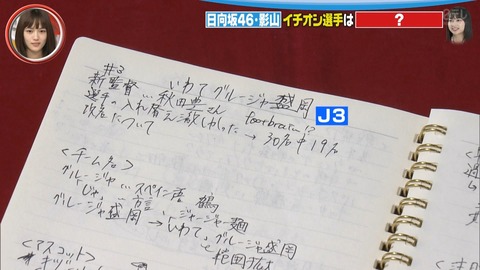 日向坂46・影山 イチオシ選手は ?
いわてグルージャ盛岡
J3
#3
新監督…秋田豊さん
選手の入れ替え激しかった → 30名中19名
改名について
<チーム名>
グルージャ…スペイン語 鶴
じゃ…方言、ジャージャー麺
グルージャ盛岡 → いわてグルージャ盛岡
<マスコット>